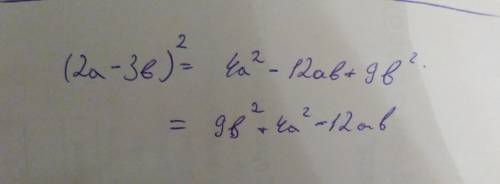 (2a-3в)² = 4a² - 12aв + 9в².
= 9в² + 4a² - 12aв